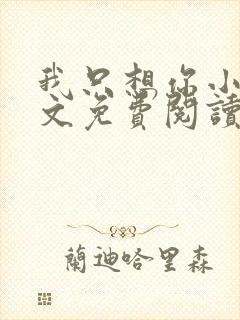 我只想你小
文免費閱讀
蘭迪哈里森